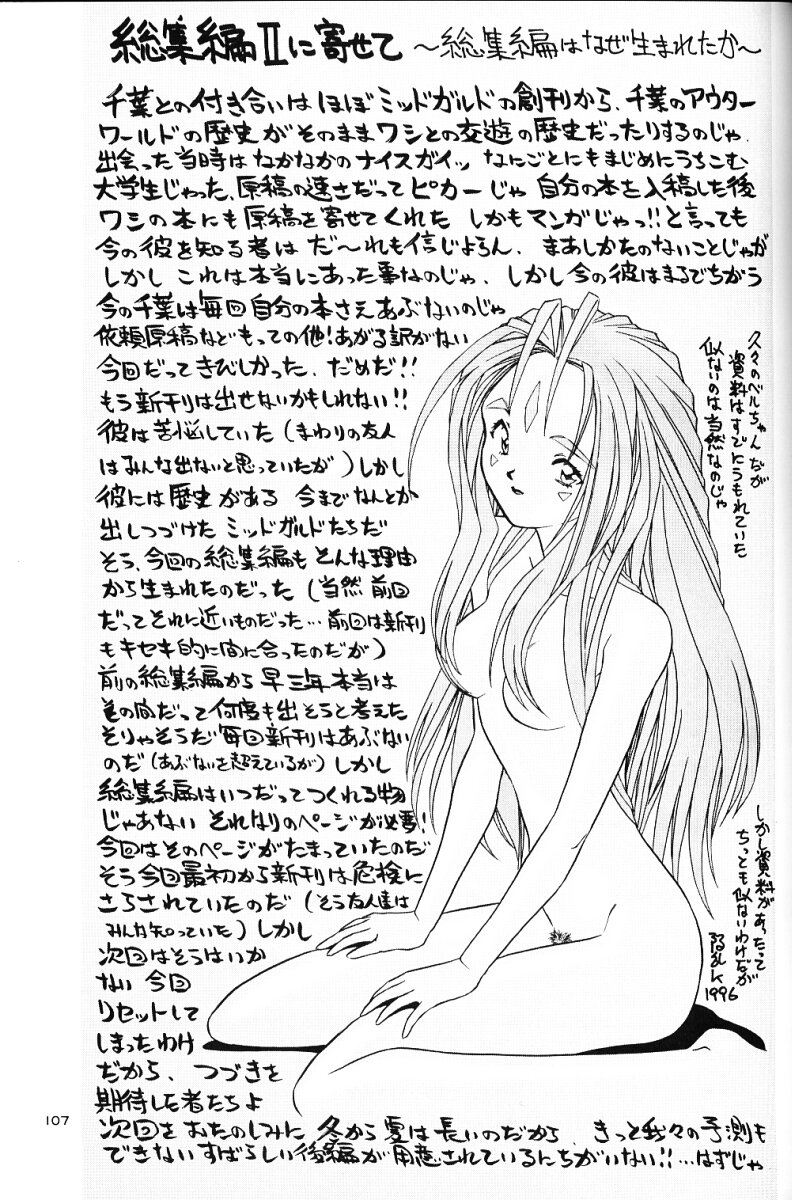 総集編Ⅱに寄せて ～総集編はなぜ生まれたか～
千葉との付き合いはほぼミッドガルドの創刊から、千葉のアウター
ワールドの歴史がそのままワシとの交遊の歴史だったりするのじゃ、
出会った当時はなかなかのナイスガイッ なにごとにもまじめにうちこむ
大学生じゃった、原稿の速さだってピカ一じゃ 自分の本を入稿した後
ワシの本にも原稿を寄せてくれた しかもマンガじゃっ!!と言っても
今の彼を知る者は だ〜れも信じよろん、まあしかたのないことじゃが
しかし これは本当にあった事なのじゃ、しかし今の彼はまるでちがう
今の千葉は毎回自分の本さえあぶないのじゃ
依頼原稿などもっての他!あがる訳がない
今回だってきびしかった、だめだ!!
もう新刊は出せないかもしれない!!
彼は苦悩していた（まわりの友人
はみんな出ないと思っていたが）しかし
彼には歴史がある 今までなんとか
出しつづけたミッドガルドたちだ
そう、今回の総集編もそんな理由
から生まれたのだった（当然前回
だってそれに近いものだった…前回は新刊
もキセキ的に間に合ったのだが）
前の総集編から早三年本当は
その間だって何度も出そうと考えた
そりゃそうだ毎回新刊はあぶない
のだ（あぶないを超えているが）しかし
総集編はいつだってつくれる物
じゃあない それなりのページが必要!
今回はそのページがたまっていたのだ
そう今回最初から新刊は危険に
さらされていたのだ（そう友人達は
みんな知っていた）しかし
次回はそうはいか
ない 今回
リセットして
しまったわけ
だから、つづきを
期待した者たちよ
次回をおたのしみに 冬から夏は長いのだから、きっと我々の予測も
できないすばらしい後編が用意されているにちがいない!!…はずじゃ
久々のベルちゃんだが
資料はすでにうもれていた
似ないのは当然なのじゃ
しかし資料があったって
ちっとも似ないわけだが
1996
107